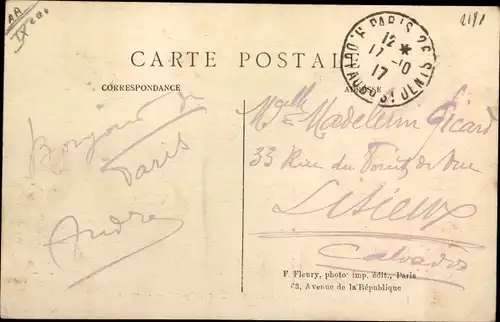 AR
IX eme
2191
PARIS 26
R. DU FAUBG ST DENIS
12 *
17 -10
17
CARTE POSTALE
CORRESPONDANCE
ADRESSE
Bonjour de
Paris
André
Melle Madeleine Picard
33 Rue du Point de Vue
Lisieux
Calvados
F. Fleury, photo. imp. édit., Paris
63, Avenue de la République